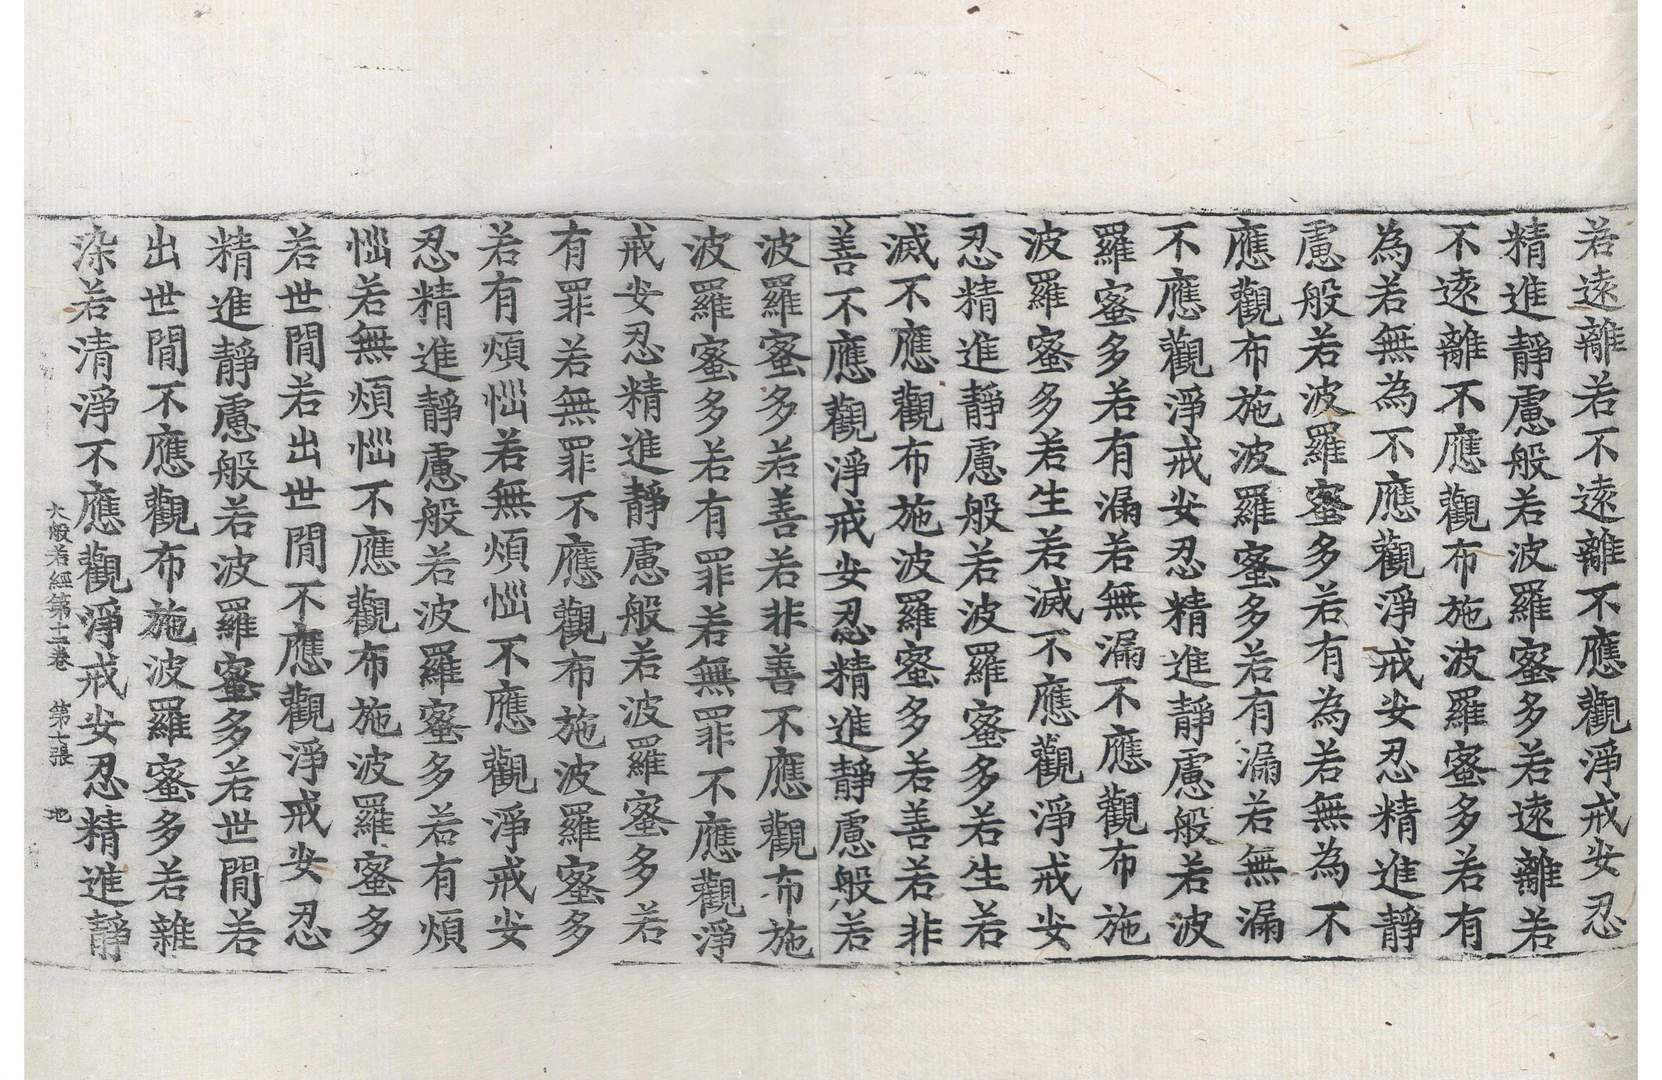 若遠離若不遠離不應觀淨戒安忍
精進靜慮般若波羅蜜多若遠離若
不遠離不應觀布施波羅蜜多若有
為若無為不應觀淨戒安忍精進靜
慮般若波羅蜜多若有為若無為不
應觀布施波羅蜜多若有漏若無漏
不應觀淨戒安忍精進靜慮般若波
羅蜜多若有漏若無漏不應觀布施
波羅蜜多若生若滅不應觀淨戒安
忍精進靜慮般若波羅蜜多若生若
滅不應觀布施波羅蜜多若善若非
善不應觀淨戒安忍精進靜慮般若
波羅蜜多若善若非善不應觀布施
波羅蜜多若有罪若無罪不應觀淨
戒安忍精進靜慮般若波羅蜜多若
有罪若無罪不應觀布施波羅蜜多
若有煩惱若無煩惱不應觀淨戒安
忍精進靜慮般若波羅蜜多若有煩
惱若無煩惱不應觀布施波羅蜜多
若世閒若出世閒不應觀淨戒安忍
精進靜慮般若波羅蜜多若世閒若
出世閒不應觀布施波羅蜜多若雜
染若清淨不應觀淨戒安忍精進靜
大般若經第十二卷 第七張 地